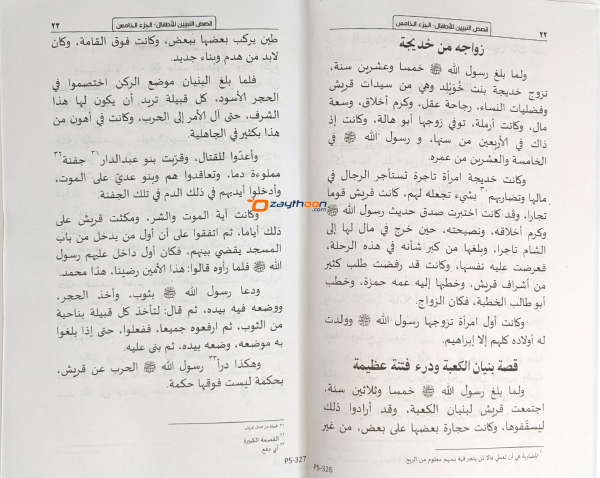 ٢٢
قصص النبيين للأطفال- الجزء الخامس
زواجه من خديجة
ولما بلغ رسول الله ﷺ خمسا وعشرين سنة،
تزوج خديجة بنت خُوَيْلِد وهي من سيدات قريش
وفضليات النساء، رجاحة عقل، وكرم أخلاق، وسعة
مال، وكانت أرملة، توفي زوجها أبو هالة، وكانت إذ
ذاك في الأربعين من سنها، و رسول الله ﷺ في
الخامسة والعشرين من عمره.
وكانت خديجة امرأة تاجرة تستأجر الرجال في
مالها وتضاربهم٣٠ بشيء تجعله لهم، كانت قريش قوما
تجارا، وقد كانت اختبرت صدق حديث رسول الله ﷺ
وكرم أخلاقه، ونصيحته، حين خرج في مال لها إلى
الشام تاجرا، وبلغها من كبر شأنه في هذه الرحلة،
فعرضت عليه نفسها، وكانت قد رفضت طلب كثير
من أشراف قريش، وخطبها إليه عمه حمزة، وخطب
أبو طالب الخطبة، فكان الزواج.
وكانت أول امرأة تزوجها رسول الله ﷺ وولدت
له أولاده كلهم إلا إبراهيم.
قصة بنيان الكعبة ودرء فتنة عظيمة
ولما بلغ رسول الله ﷺ خمسا وثلاثين سنة،
اجتمعت قريش لبنيان الكعبة، وقد أرادوا ذلك
ليسقّفوها، وكانت حجارة بعضها على بعض، من غير
المضاربة هي أن تعطي مالا لمن يتجر فيه بسهم معلوم من الربح
P5-326
قصص النبيين للأطفال- الجزء الخامس
٢٣
طين يركب بعضها ببعض، وكانت فوق القامة، وكان
لابد من هدم وبناء جديد.
فلما بلغ البنيان موضع الركن اختصموا في
الحجر الأسود، كل قبيلة تريد أن يكون لها هذا
الشرف، حتى آل الأمر إلى الحرب، وكانت في أهون من
هذا بكثير في الجاهلية.
وأعدّوا للقتال، وقرّبت بنو عبدالدار٣١ جفنة٣٢
مملوءة دما، وتعاقدوا هم وبنو عديّ على الموت،
وأدخلوا أيديهم في ذلك الدم في تلك الجفنة.
وكانت آية الموت والشر، ومكثت قريش على
ذلك أياما، ثم اتفقوا على أن أول من يدخل من باب
المسجد يقضي بينهم، فكان أول داخل عليهم رسول
الله ﷺ فلما رأوه قالوا: هذا الأمين رضينا، هذا محمد.
ودعا رسول الله ﷺ بثوب، وأخذ الحجر،
ووضعه فيه بيده، ثم قال: لتأخذ كل قبيلة بناحية
من الثوب، ثم ارفعوه جميعا، ففعلوا، حتى إذا بلغوا
به موضعه، وضعه بيده، ثم بنى عليه.
وهكذا درأ٣٣ رسول الله ﷺ الحرب عن قريش،
بحكمة ليست فوقها حكمة.
٣١ قبيلة من قبائل قريش
٣٢ القصعة الكبيرة
٣٣ أي دفع.
P5-327
zaythoon.com